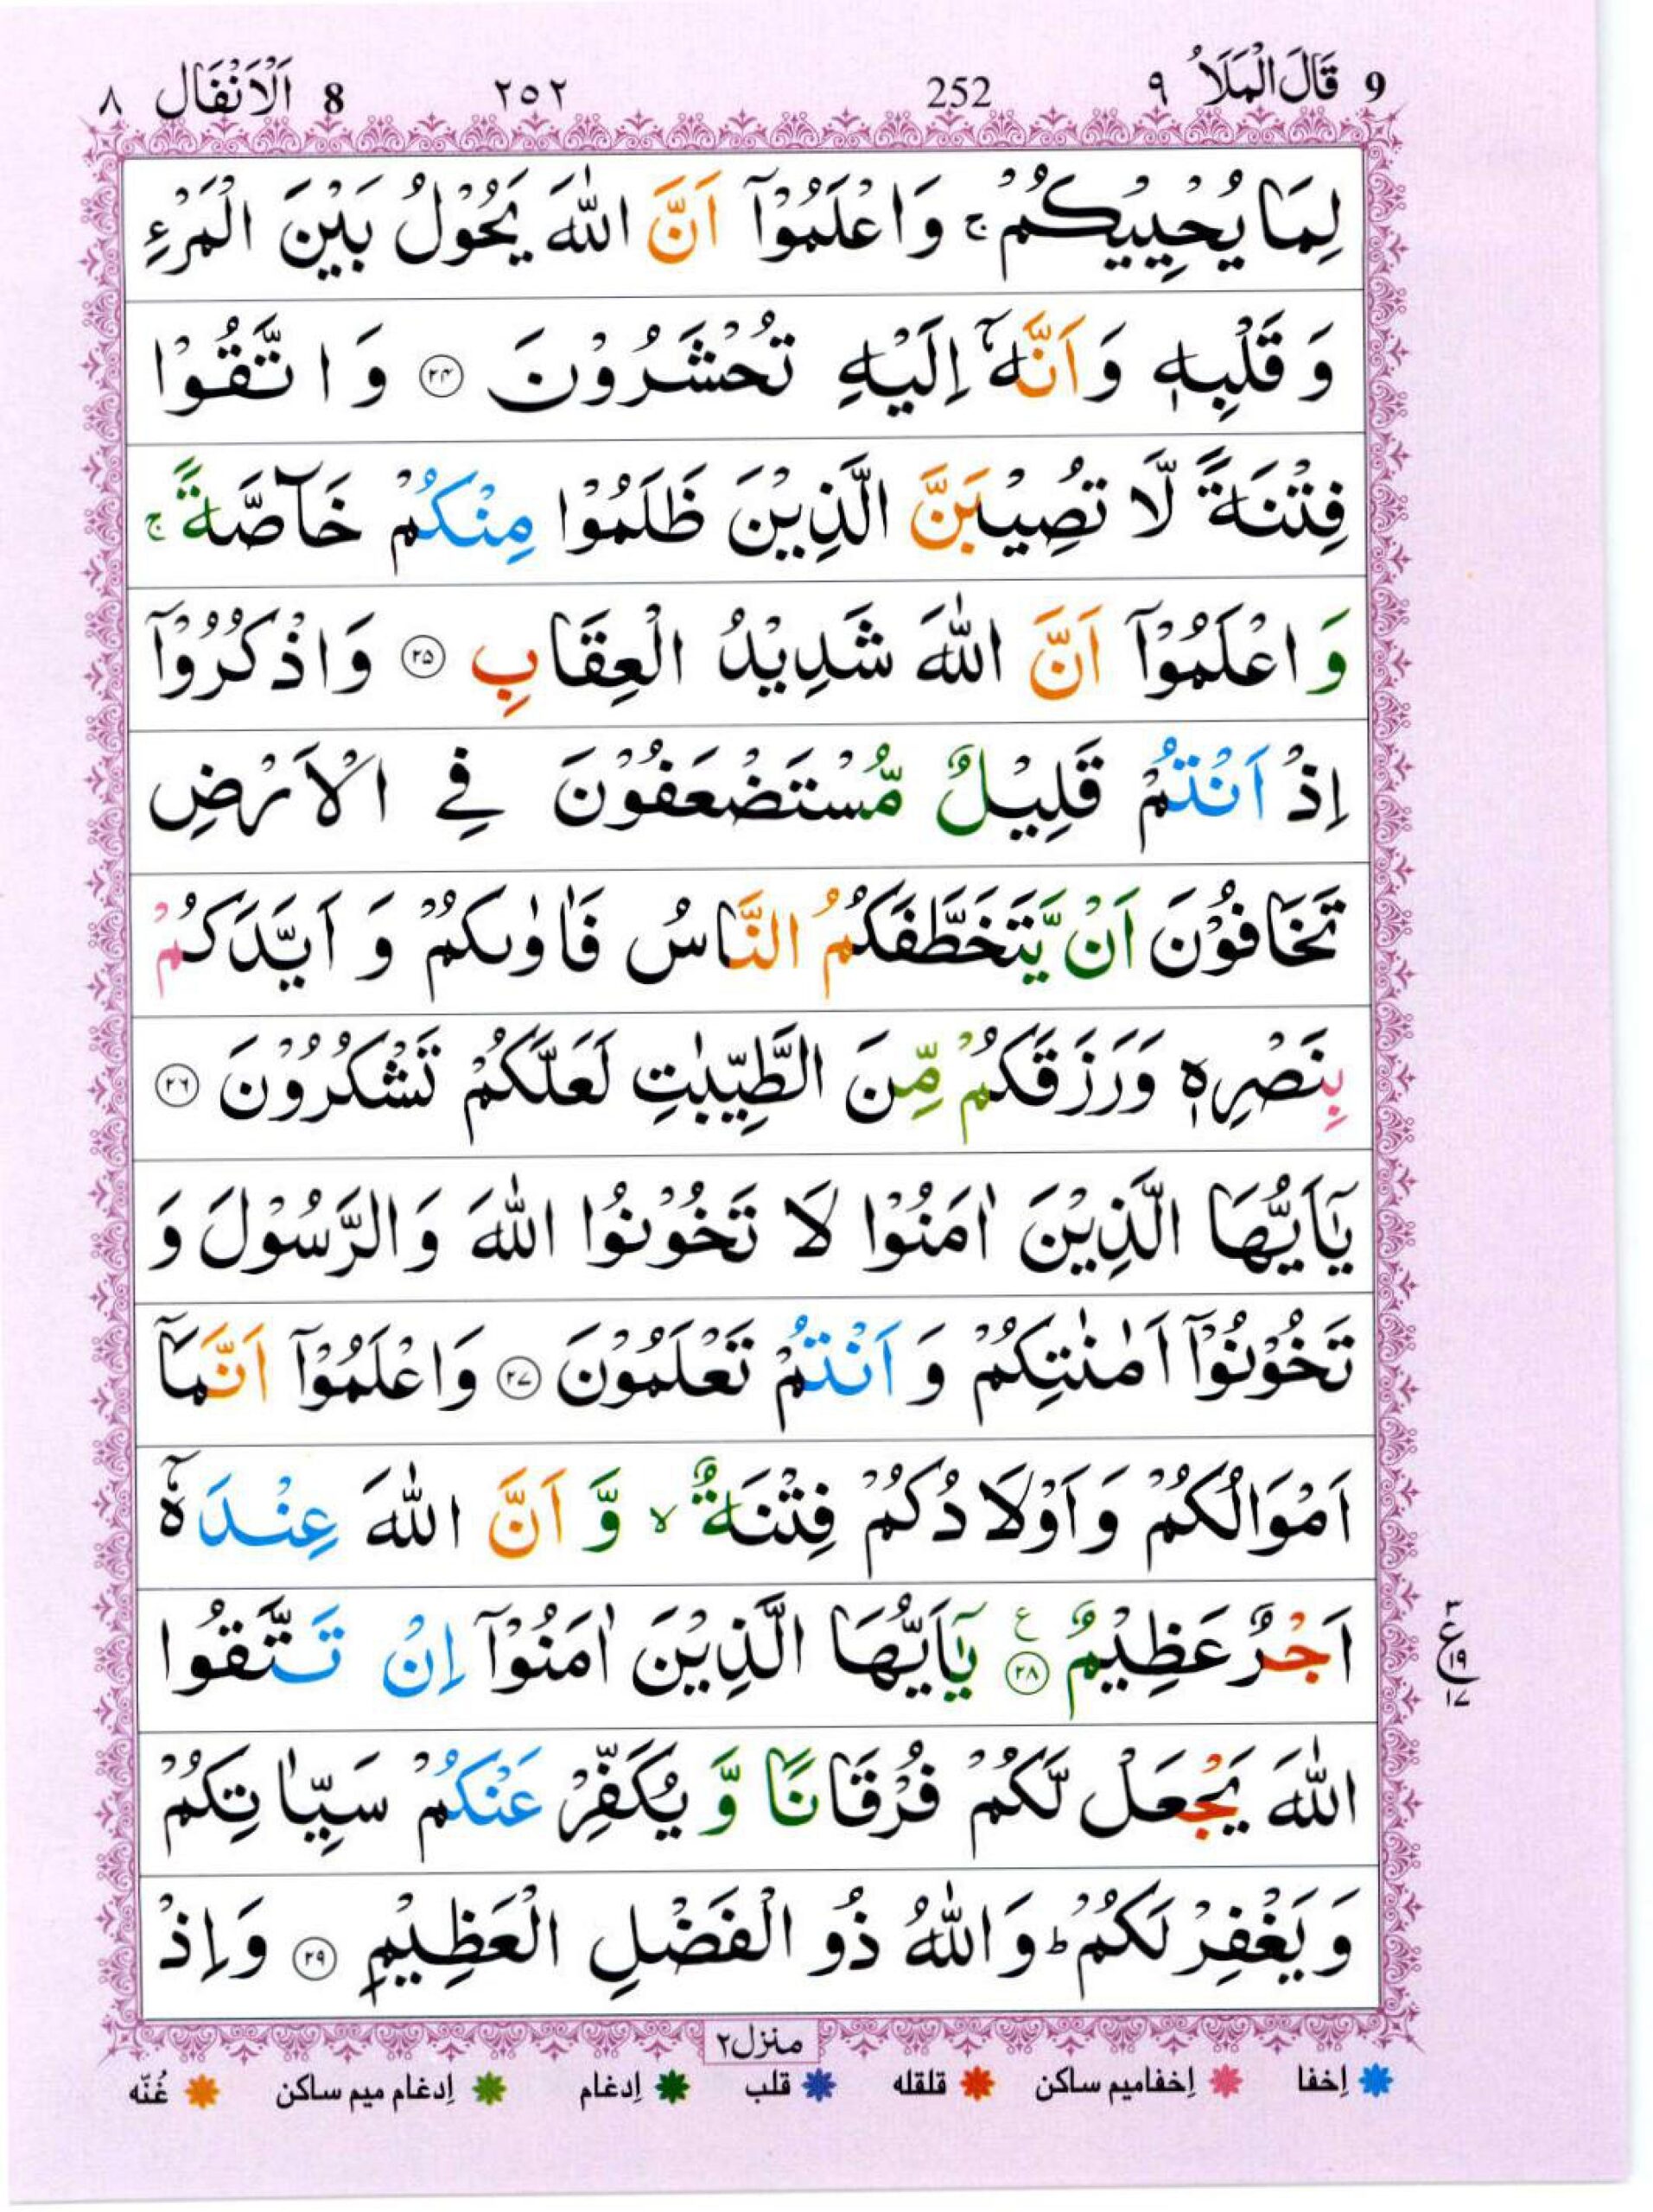 9 قَالَ الْمَلَاُ ٩ 252 ٢٥٢ 8 اَلْاَنْفَال ٨
لِمَا يُحْيِيْكُمْ ۚ وَاعْلَمُوْۤا اَنَّ اللّٰهَ يَحُوْلُ بَيْنَ الْمَرْءِ
وَ قَلْبِهٖ وَ اَنَّهٗۤ اِلَيْهِ تُحْشَرُوْنَ ۝۲۴ وَ اتَّقُوْا
فِتْنَةً لَّا تُصِيْبَنَّ الَّذِيْنَ ظَلَمُوْا مِنْكُمْ خَآصَّةً ۚ
وَ اعْلَمُوْۤا اَنَّ اللّٰهَ شَدِيْدُ الْعِقَابِ ۝۲۵ وَاذْكُرُوْۤا
اِذْ اَنْتُمْ قَلِيْلٌ مُّسْتَضْعَفُوْنَ فِي الْاَرْضِ
تَخَافُوْنَ اَنْ يَّتَخَطَّفَكُمُ النَّاسُ فَاٰوٰىكُمْ وَ اَيَّدَكُمْ
بِنَصْرِهٖ وَرَزَقَكُمْ مِّنَ الطَّيِّبٰتِ لَعَلَّكُمْ تَشْكُرُوْنَ ۝۲۶
يٰۤاَيُّهَا الَّذِيْنَ اٰمَنُوْا لَا تَخُوْنُوا اللّٰهَ وَالرَّسُوْلَ وَ
تَخُوْنُوْۤا اَمٰنٰتِكُمْ وَ اَنْتُمْ تَعْلَمُوْنَ ۝۲۷ وَاعْلَمُوْۤا اَنَّمَاۤ
اَمْوَالُكُمْ وَاَوْلَادُكُمْ فِتْنَةٌ ۙ وَّ اَنَّ اللّٰهَ عِنْدَهٗۤ
اَجْرٌ عَظِيْمٌ ۝۲۸ ع يٰۤاَيُّهَا الَّذِيْنَ اٰمَنُوْۤا اِنْ تَتَّقُوا
٣ ع ١٩ ١٧
اللّٰهَ يَجْعَلْ لَّكُمْ فُرْقَانًا وَّ يُكَفِّرْ عَنْكُمْ سَيِّاٰتِكُمْ
وَ يَغْفِرْ لَكُمْ ؕ وَ اللّٰهُ ذُو الْفَضْلِ الْعَظِيْمِ ۝۲۹ وَاِذْ
منزل۲
اِخفا اِخفامیم ساکن قلقله قلب اِدغام اِدغام میم ساکن غُنّه